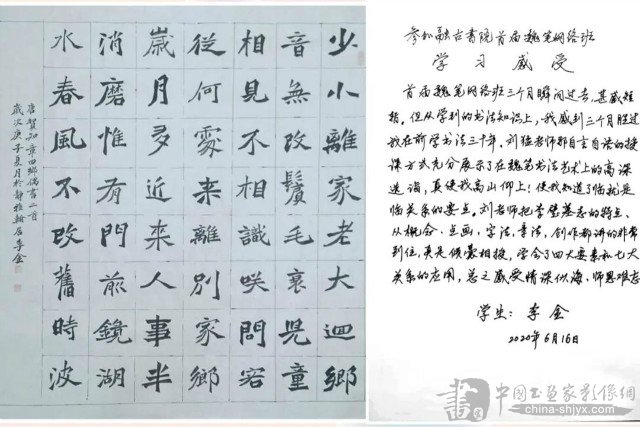 少小離家老大迴鄉
音無改鬢毛衰兒童
相見不相識咲問客
從何處來離別家鄉
歲月多近來人事半
消磨惟有門前鏡湖
水春風不改舊時波
唐賀知章回鄉偶書二首
歲次庚子夏月於靜雅居李金
参加融古書院首届魏笔网络班
学习感受
首届魏笔网络班三个月瞬间过去,甚感短
板。但从学到的书法知识上,我感到三个月胜过
我在前学书法三十年。刘猛老师那自言自语的授
课方式充分展示了在魏笔书法艺术上的高深
造诣,真使我高山仰上!使我知道了临就是
临关系的要点。刘老师把李璧墓志的特点、
从概念、点画、字法、章法,创作都讲的非常
到位,真是倾囊相授,学会了四大要素和七大
关系的应用,总之感受情深似海,师恩难忘
学生:李金
2020年6月16日
中国书画家影像網
china-shjyx.com